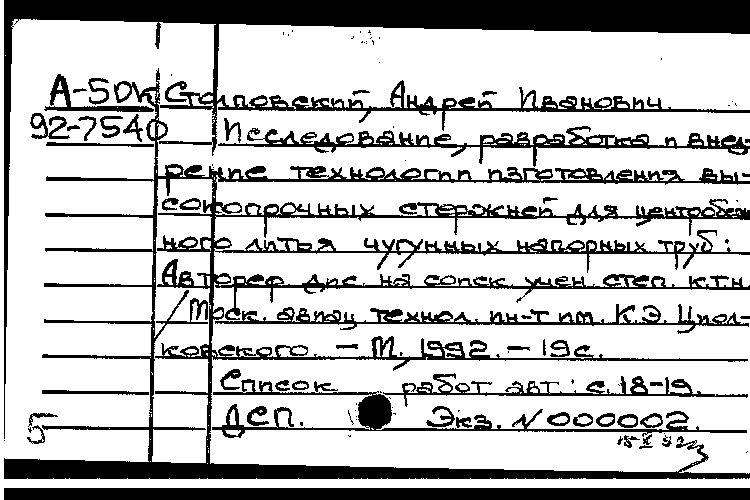 А-5ДК Столповский, Андрей Иванович.
92-7540 Исследование, разработка и внед-
рение технологии изготовления вы-
сокопрочных стержней для центробеж-
ного литья чугунных напорных труб:
Автореф. дис. на соиск. учен. степ. к.т.н.
/Моск. авиац. технол. ин-т им. К.Э. Циол-
ковского. – М., 1992. – 19с.
Список работ авт.: с. 18-19.
ДСП. Экз. N 000002.
5